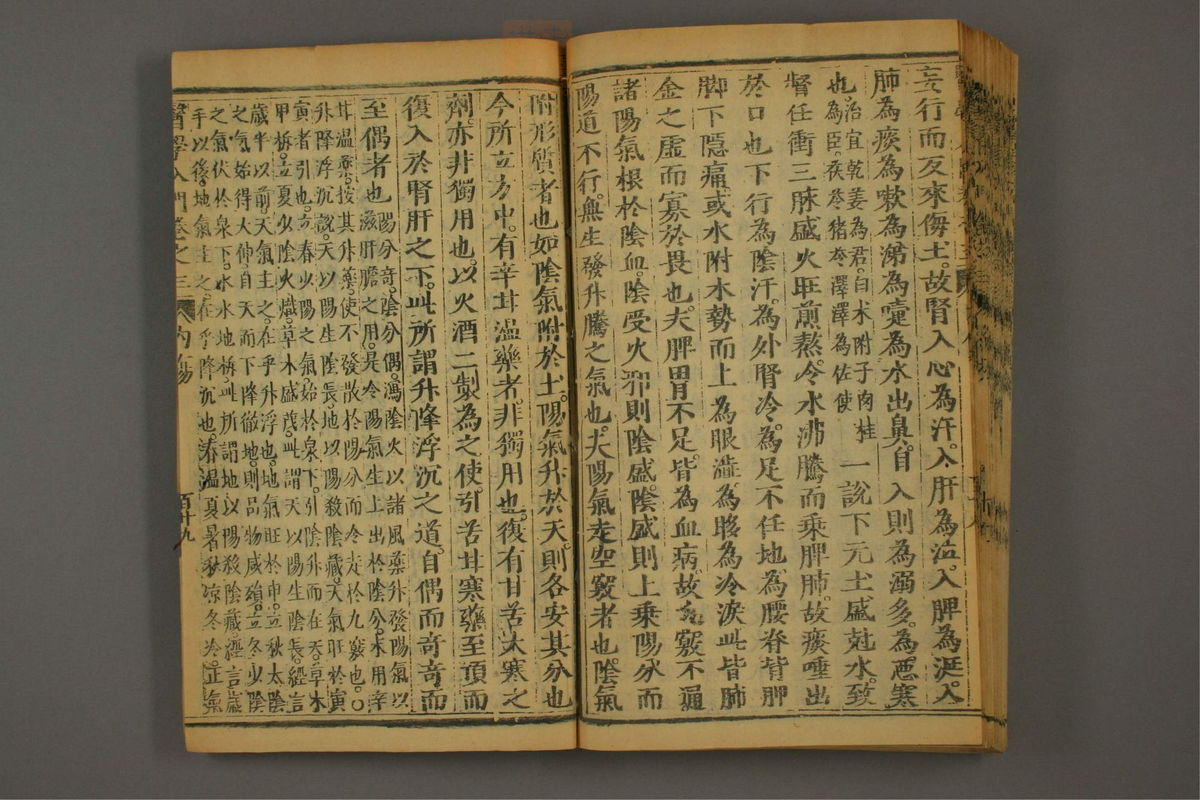 妄行而反來傷土。故腎入心為汗。入肝為泣。入脾為涎。入
肺為痰為嗽為涕為嚏為水出鼻。自入則為溺多。為惡寒
也。治宜乾姜為君。白术附子肉桂
也為臣茯苓猪苓澤瀉為佐使
一說下元土盛尅水。致
督任衝三脉盛火旺煎熬。令水沸騰而乘脾肺。故痰唾出
於口也下行為陰汗。為外腎冷。為足不任地。為腰脊背胛
脚下隱痛。或水附木勢而上為眼澁。為眵為冷淚此皆肺
金之虛而寡於畏也。夫脾胃不足。皆為血病。故九竅不通
諸陽氣根於陰血。陰受火邪則陰盛。陰盛則上乘陽分而
陽道不行。無生發升騰之氣也。夫陽氣走空竅者也。陰氣
附形質者也如陰氣附於土。陽氣升於天。則各安其分也
今所立方中。有辛甘溫藥者。非獨用也。復有甘苦大寒之
劑。亦非獨用也。以火酒二製為之使。引苦甘寒藥至頂而
復入於腎肝之下。此所謂升降浮沉之道。自偶而奇奇。而
至偶者也
陽分奇。陰分偶。瀉陰火以諸風藥升發陽氣以
滋肝膽之用。是令陽氣生上出於陰分。末用辛
甘溫藥。按其升藥。使不發散於陽分而令走於九竅也。○
升降浮沉說。天以陽生陰長地以陽殺陰藏。天氣旺於寅
寅者引也。立春少陽之氣始於泉下。引陰升而在天。草木
甲柝。立夏少陰火熾。草木盛茂。此謂天以陽生陰長。經言
歲半以前。天氣主之。在乎升浮也。地氣旺於申。立秋太陰
之氣始得大伸自天而下降徹地。則品物咸殞。立冬少陰
之氣伏於泉下。水氷地柝。此所謂地以陽殺陰藏。經言歲
半以後。地氣主之。在乎降沉也。春溫夏暑秋凉冬冷。正氣
醫學入門卷之三 內傷 百十九